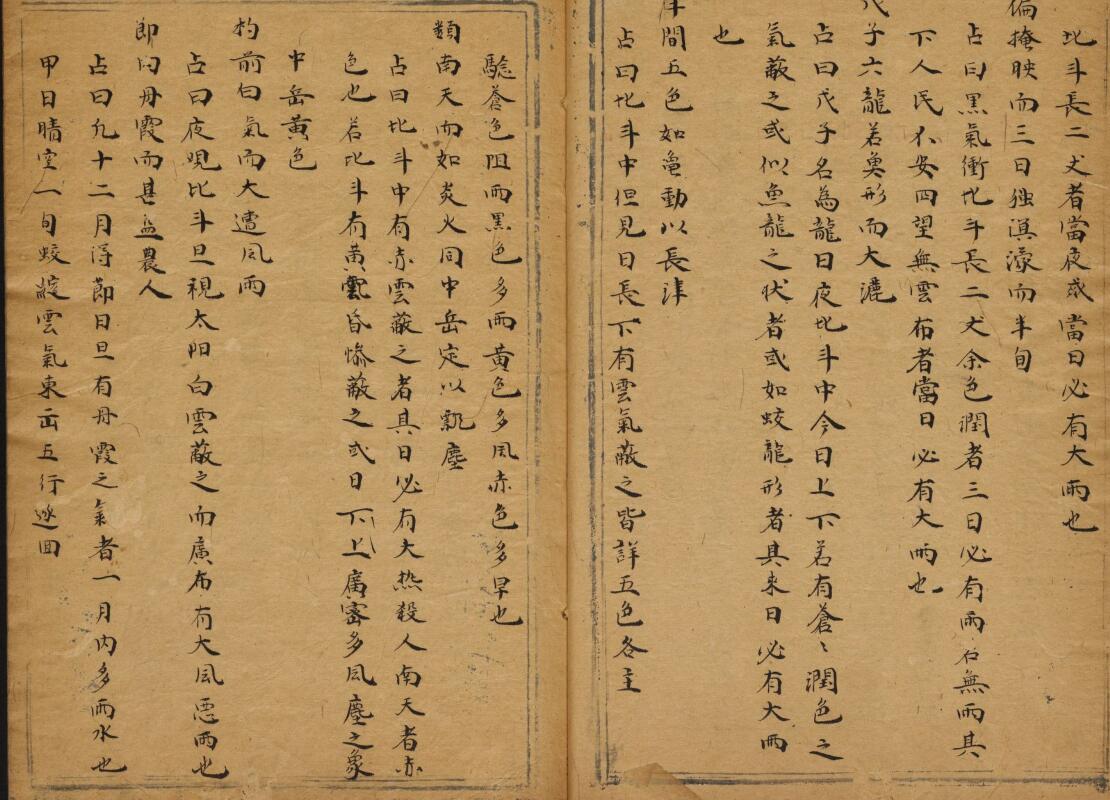 北斗長二丈者當夜或當日必有大雨也
偏掩映而三日独溟濛而半旬
占曰黑氣衝北斗長二丈余色潤者三日必有雨若無雨其
下人民不安四望無雲布者當日必有大雨也
戊子六龍若奠形而大漉
占曰戊子名為龍日夜北斗中今日上下若有蒼〻潤色之
氣蔽之或似魚龍之狀者或如蛟龍形者其来日必有大雨
也
間五色如亀動以長津
占曰北斗中但見日長下有雲氣蔽之皆詳五色各主
驗蒼色阻雨黑色多雨黄色多風赤色多旱也
類南天而如炎火同中岳定以飄塵
占曰北斗中有赤雲蔽之者其日必有大热殺人南天者赤
色也若北斗有黄雲昏惨蔽之或日下上廣密多風塵之象
中岳黄色
杓前白氣而大遭風雨
占曰夜覌北斗旦視太阳白雲蔽之而廣布有大風惡雨也
節内丹霞而甚益農人
占曰九十二月得節日旦有丹霞之氣者一月内多雨水也
甲日晴空一旬蛟龍雲氣東岳五行逆回